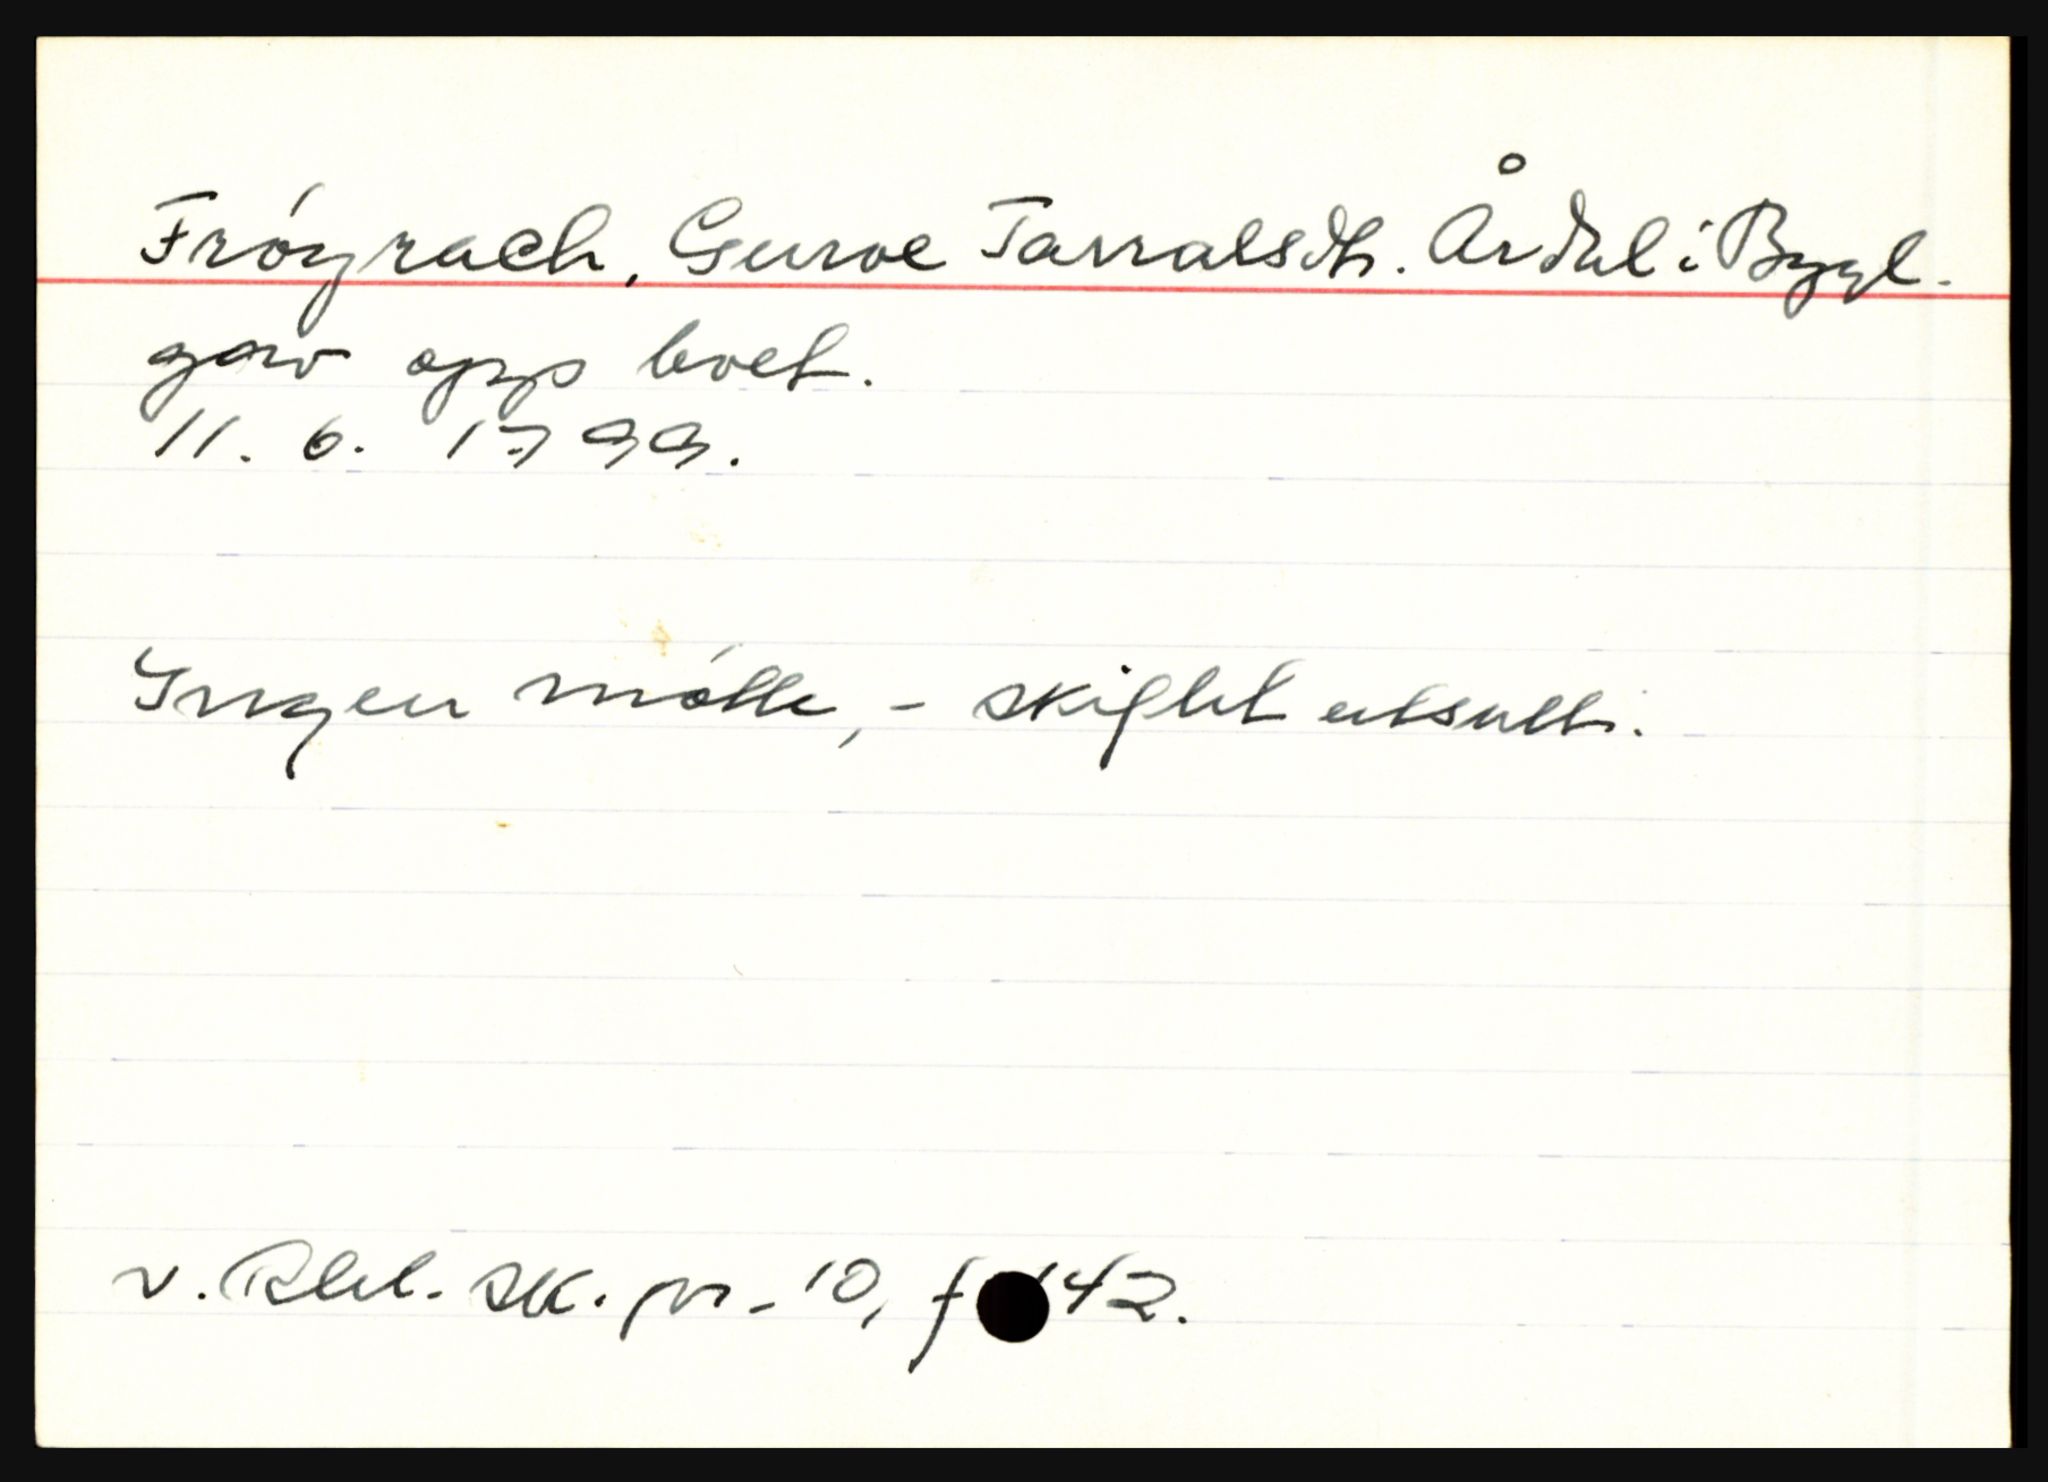 Fróyrach, Gurve Tarralsdtr. Årdal i Bygl.
gav opp boet.
11. 6. 1799.
Ingen mótte, - skiftet utsatt.
v. Rbl. sk. pr. 10, f 142.